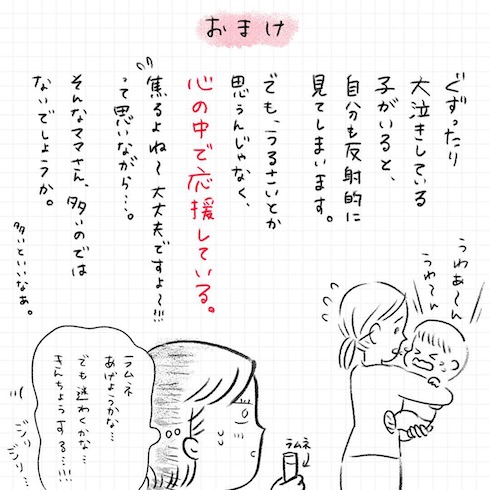 おまけ
ぐずったり
大泣きしている
子がいると、
自分も反射的に
見てしまいます。
でも、うるさいとか
思うんじゃなく、
心の中で応援している。
焦るよね〜 大丈夫ですよ〜!!!
って思いながら…。
そんなママさん、多いのでは
ないでしょうか。
多いといいなぁ。
うわあ〜ん
うわ〜ん
ラムネ
あげようかな…
でも迷わくかな…
きんちょうする…!!!
ラムネ
ジリ
ジリ…